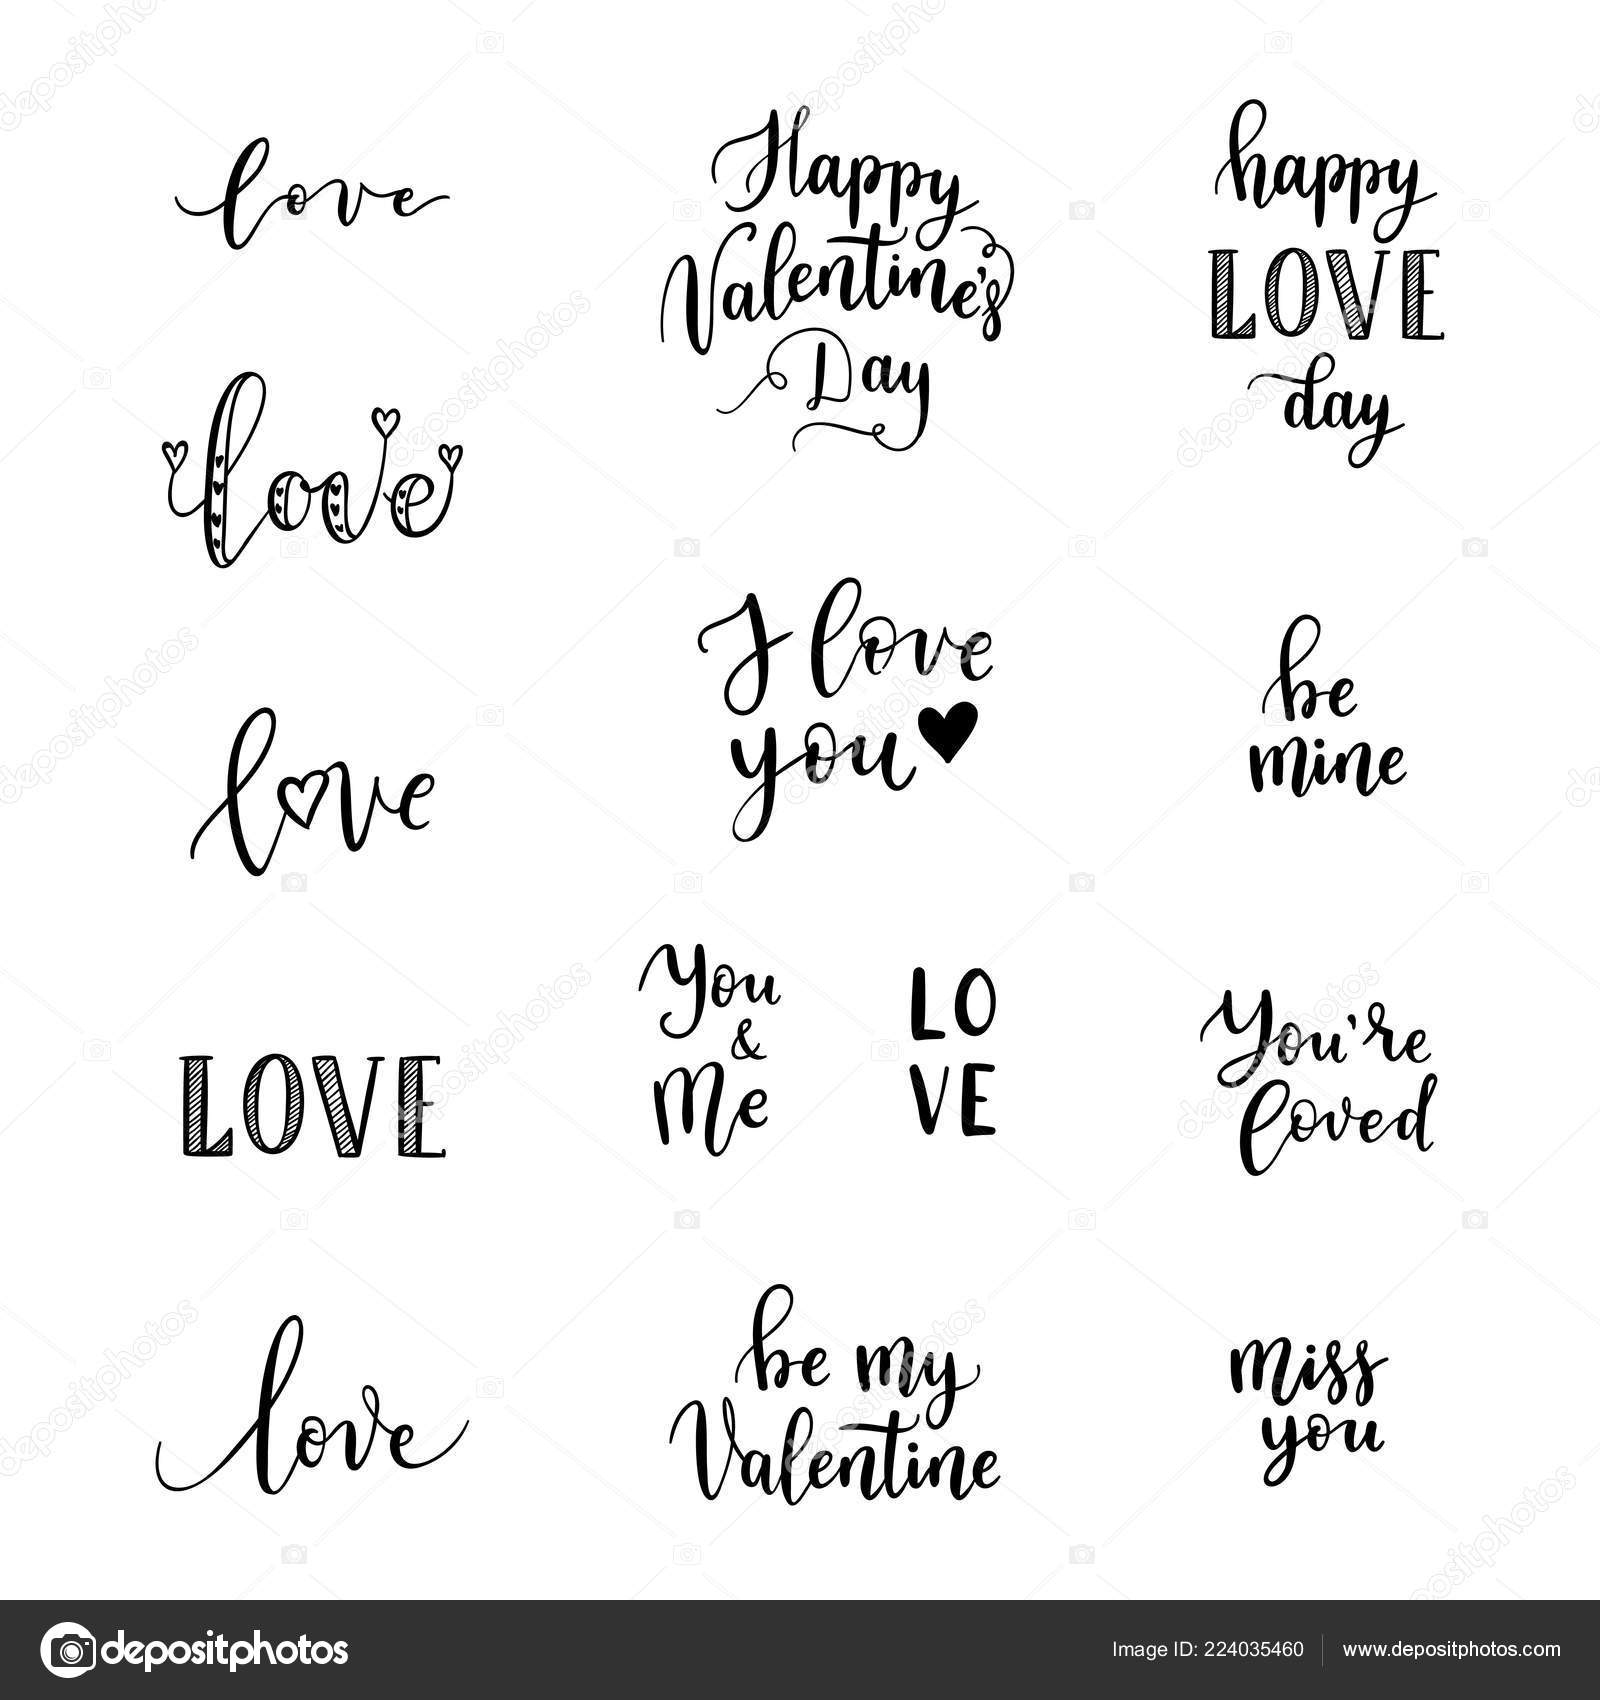 love
love
love
LOVE
love
Happy
Valentine's
Day
I love
you
You
&
Me
LO
VE
be my
Valentine
happy
LOVE
day
be
mine
You're
loved
miss
you
depositphotos
Image ID: 224035460
www.depositphotos.com